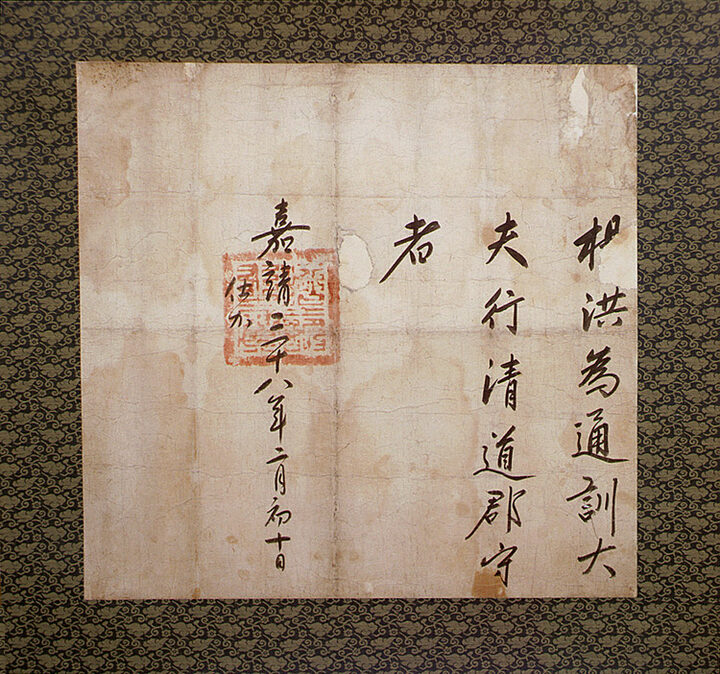 相洪為通訓大
夫行清道郡守
者
嘉靖二十八年二月初十日
仕加